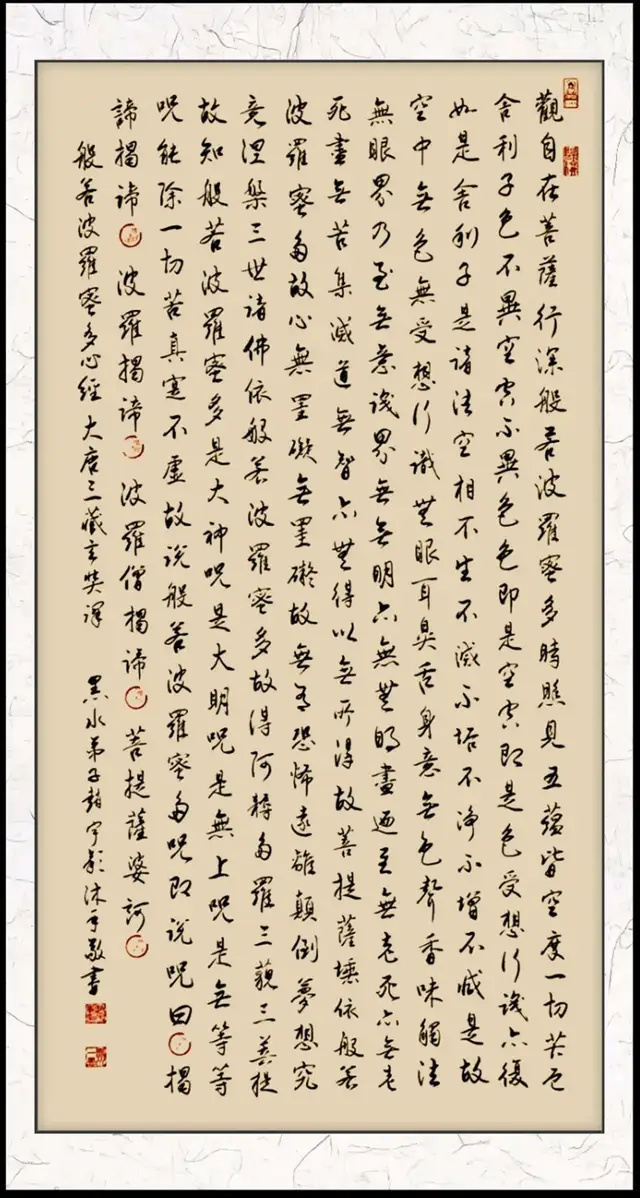 觀自在菩薩行深般若波羅蜜多時照見五蘊皆空度一切苦厄
舍利子色不異空空不異色色即是空空即是色受想行識亦復
如是舍利子是諸法空相不生不滅不垢不淨不增不減是故
空中無色無受想行識無眼耳鼻舌身意無色聲香味觸法
無眼界乃至無意識界無無明亦無無明盡迺至無老死亦無老
死盡無苦集滅道無智亦無得以無所得故菩提薩埵依般若
波羅蜜多故心無罣礙無罣礙故無有恐怖遠離顛倒夢想究
竟涅槃三世諸佛依般若波羅蜜多故得阿耨多羅三藐三菩提
故知般若波羅蜜多是大神呪是大明呪是無上呪是無等等
呪能除一切苦真實不虛故說般若波羅蜜多呪即說呪曰 揭
諦揭諦 波羅揭諦 波羅僧揭諦 菩提薩婆訶
般若波羅蜜多心經 大唐三藏玄奘譯 黑水弟子 沐手敬書